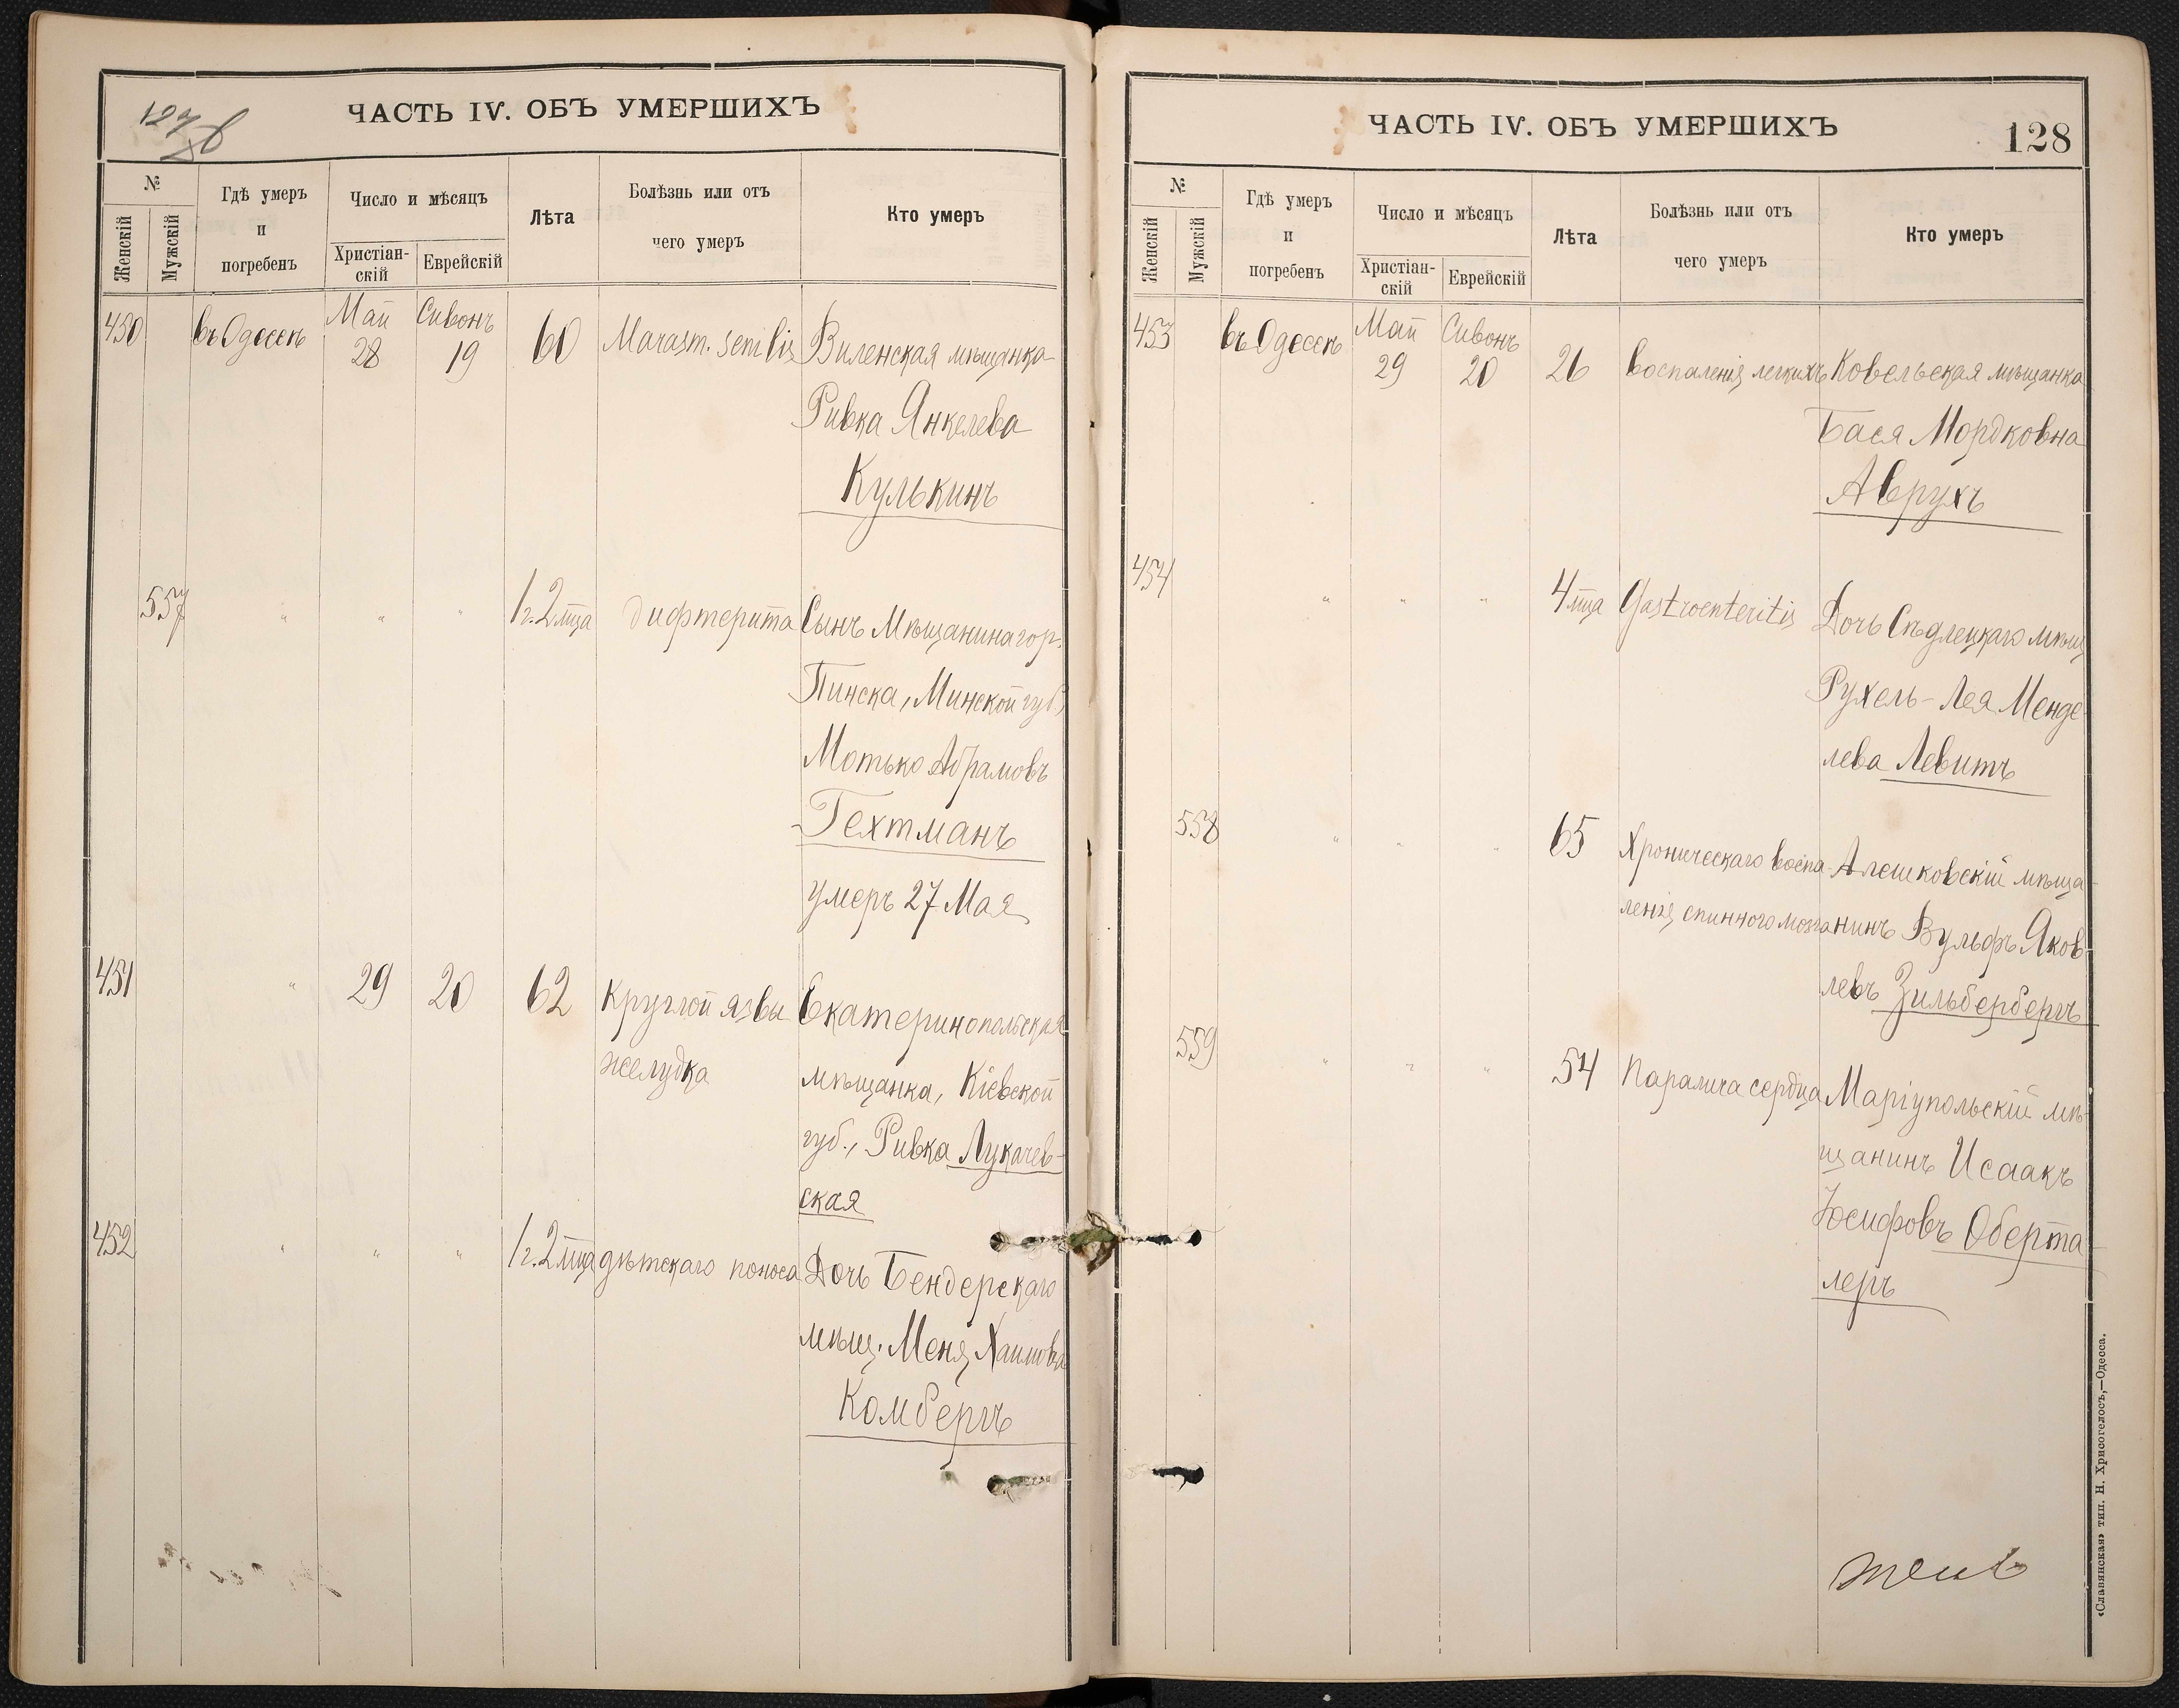 127 об
ЧАСТЬ IV. ОБЪ УМЕРШИХЪ
№
Женскій
Мужскій
Гдѣ умеръ
и
погребенъ
Число и мѣсяцъ
Христіан-
скій
Еврейскій
Лѣта
Болѣзнь или отъ
чего умеръ
Кто умеръ
450 въ Одессѣ Май 28 Сивонъ 19 60 Marasm. senilis Виленская мѣщанка
Ривка Янкелева
Кулькинъ
557 " " " 1 г. 2 мца дифтерита Сынъ Мѣщанина гор.
Пинска, Минской губ.,
Мотько Абрамовъ
Гехтманъ
умеръ 27 Мая
451 " 29 20 62 Круглой язвы Екатеринопольская
желудка мѣщанка, Кіевской
губ., Ривка Лукачев-
ская
452 " " " 1 г. 2 мца дѣтскаго поноса Дочь Бендерскаго
мѣщ. Меня Хаимова
Комбергъ
ЧАСТЬ IV. ОБЪ УМЕРШИХЪ
128
№
Женскій
Мужскій
Гдѣ умеръ
и
погребенъ
Число и мѣсяцъ
Христіан-
скій
Еврейскій
Лѣта
Болѣзнь или отъ
чего умеръ
Кто умеръ
453 въ Одессѣ Май 29 Сивонъ 20 26 воспаленія легкихъ Ковельская мѣщанка
Бася Мордковна
Аврухъ
454 " " " 4 мца Gastroenteritis Дочь Сѣдлецкаго мѣщ
Рухель-Лея Менде-
лева Левитъ
558 " " " 65 Хроническаго воспа- Алешковскій мѣща-
ленія спиннаго мозга нинъ Вульфъ Яков-
левъ Зильбербергъ
559 " " " 54 Паралича сердца Маріупольскій мѣ-
щанинъ Исаакъ
Іосифовъ Оберта-
леръ
«Славянская» тип. Н. Хрисогелосъ,—Одесса.